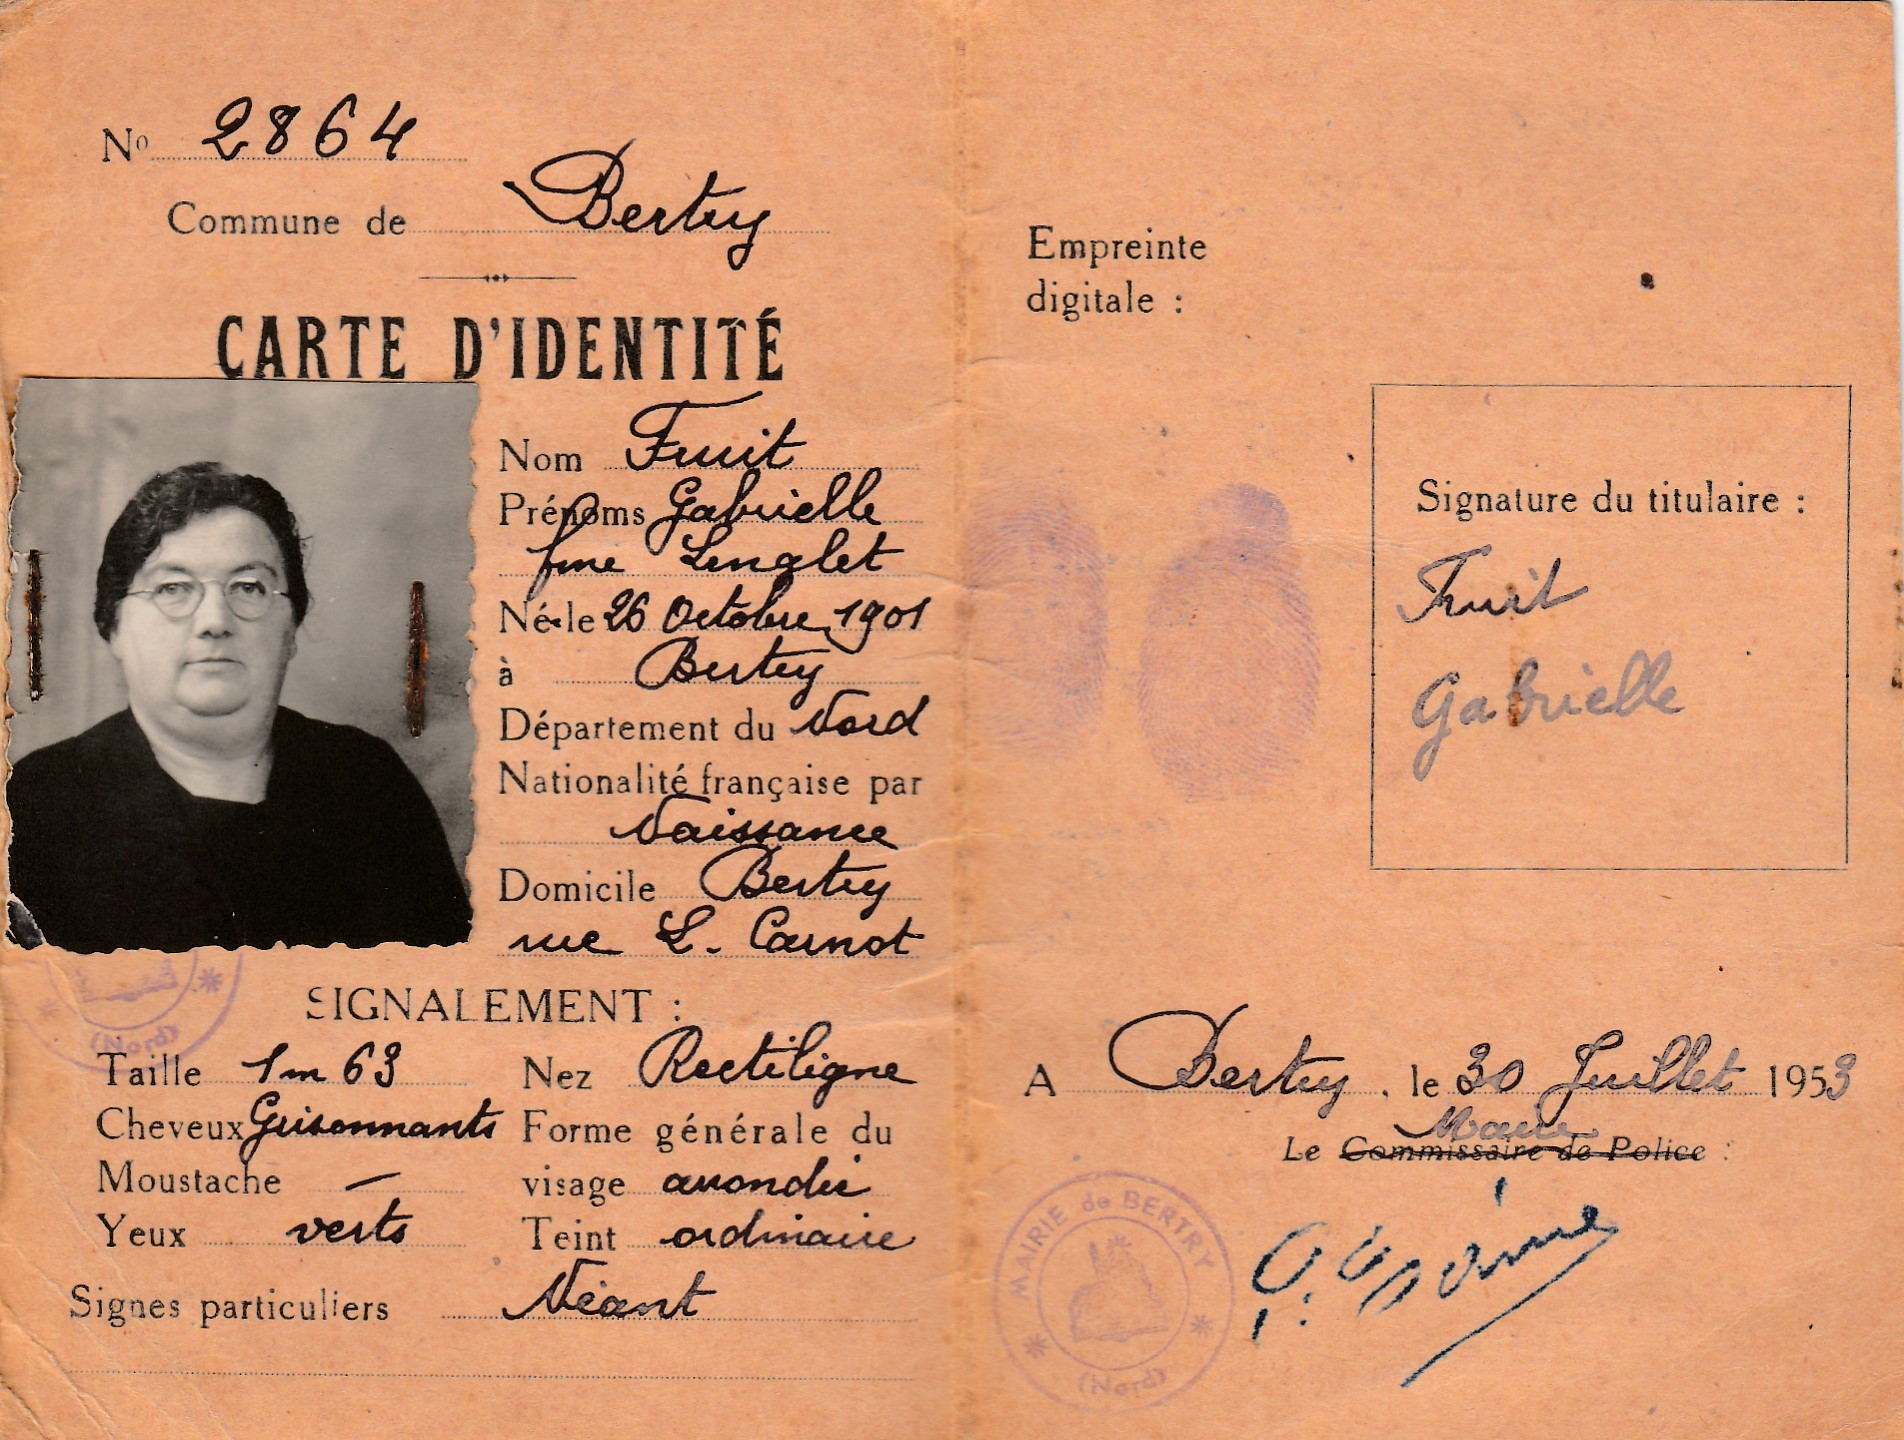 No 2864
Commune de Bertry
CARTE D'IDENTITÉ
Nom Fruit
Prénoms Gabrielle
fme Lenglet
Né le 26 Octobre 1901
à Bertry
Département du Nord
Nationalité française par
Naissance
Domicile Bertry
rue L. Carnot
SIGNALEMENT :
(Nord)
Taille 1m63
Cheveux Grisonnants
Moustache —
Yeux verts
Nez Rectiligne
Forme générale du
visage arrondie
Teint ordinaire
Signes particuliers Néant
Empreinte
digitale :
Signature du titulaire :
Fruit
Gabrielle
A Bertry, le 30 Juillet 1953
Maire
Le Commissaire de Police :
MAIRIE de BERTRY
(Nord)